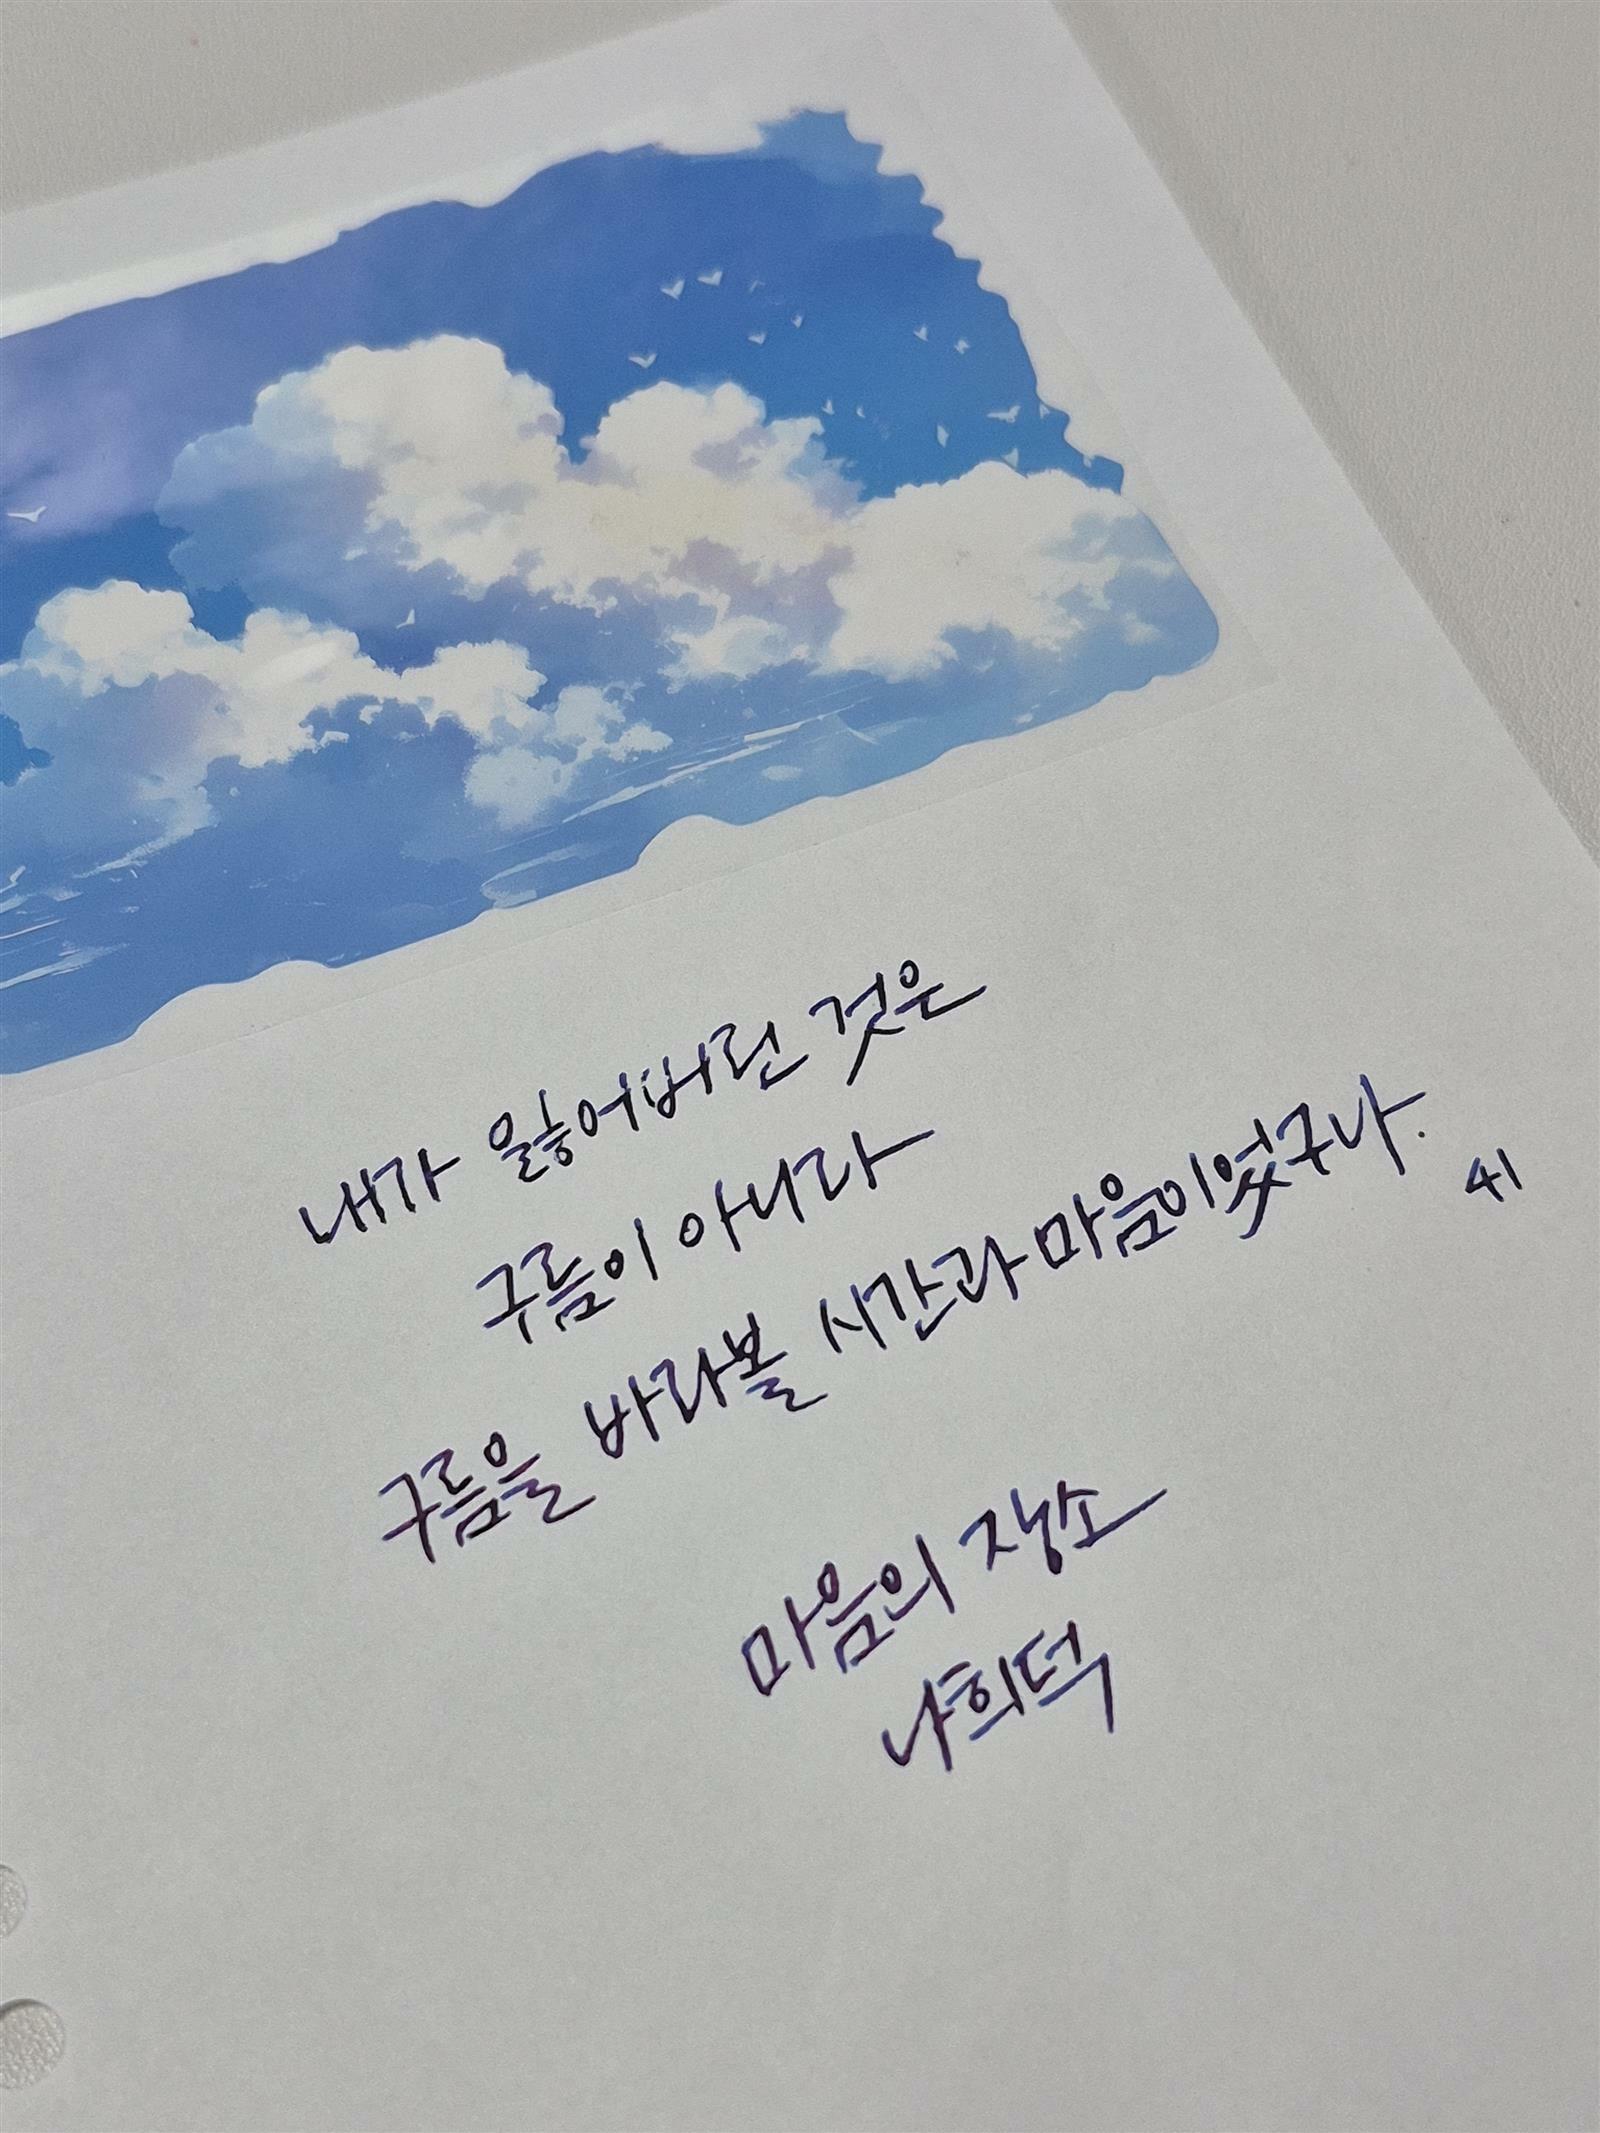 내가 잃어버린 것은
구름이 아니라
구름을 바라볼 시간과 마음이었구나.
41
마음의 장소
나희덕